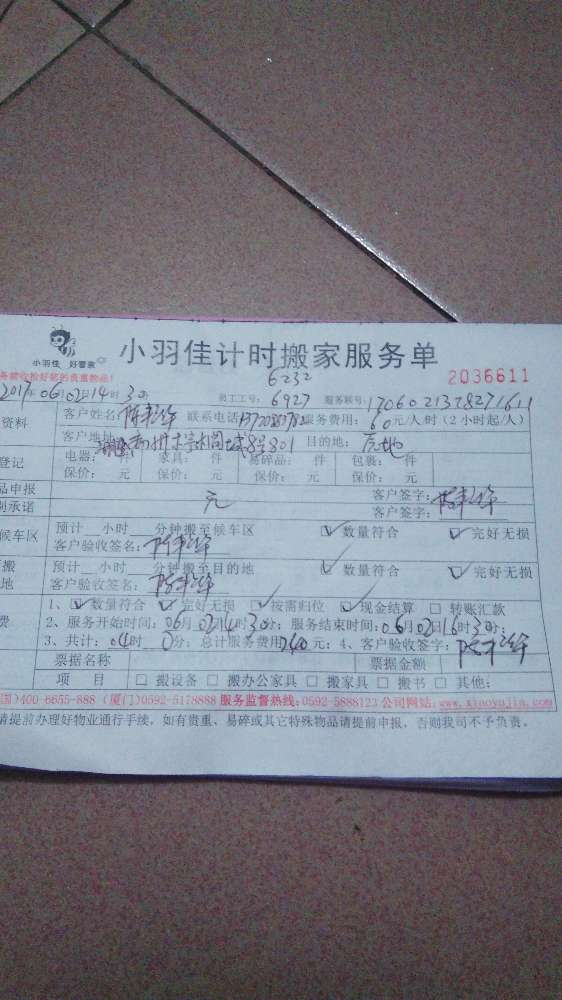 小羽佳 好管家
小羽佳计时搬家服务单
务前收拾好您的贵重物品!
6232
2036611
2017年06月02日14时30
员工工号: 6927
服务账号: 1706021328271611
资料
客户姓名: 联系电话: 服务费用: 60元/人/时(2小时起/人)
客户地址: 8号801 目的地:
登记
电器: 件 家具: 件 易碎品: 件 包裹: 件
保价: 元 保价: 元 保价: 元 保价: 元
品申报
别承诺
元 客户签字:
候车区
预计 小时 分钟搬至候车区 数量符合 完好无损
客户验收签名:
搬
地
预计 小时 分钟搬至目的地 数量符合 完好无损
客户验收签名:
费
1、数量符合 完好无损 按需归位 现金结算 转账汇款
2、服务开始时间: 06月02日14时30分; 服务结束时间: 06月02日16时30分;
3、共计: 04时 0分; 总计服务费用240元; 4、客户验收签字:
票据名称 票据金额
项 目 搬设备 搬办公家具 搬家具 搬书 其他:
国)400-6655-888 (厦门)0592-5178888 服务监督热线:0592-5888123 公司网站: www.xiaoyujia.com
请提前办理好物业通行手续,如有贵重、易碎或其它特殊物品请提前申报,否则我司不予负责。